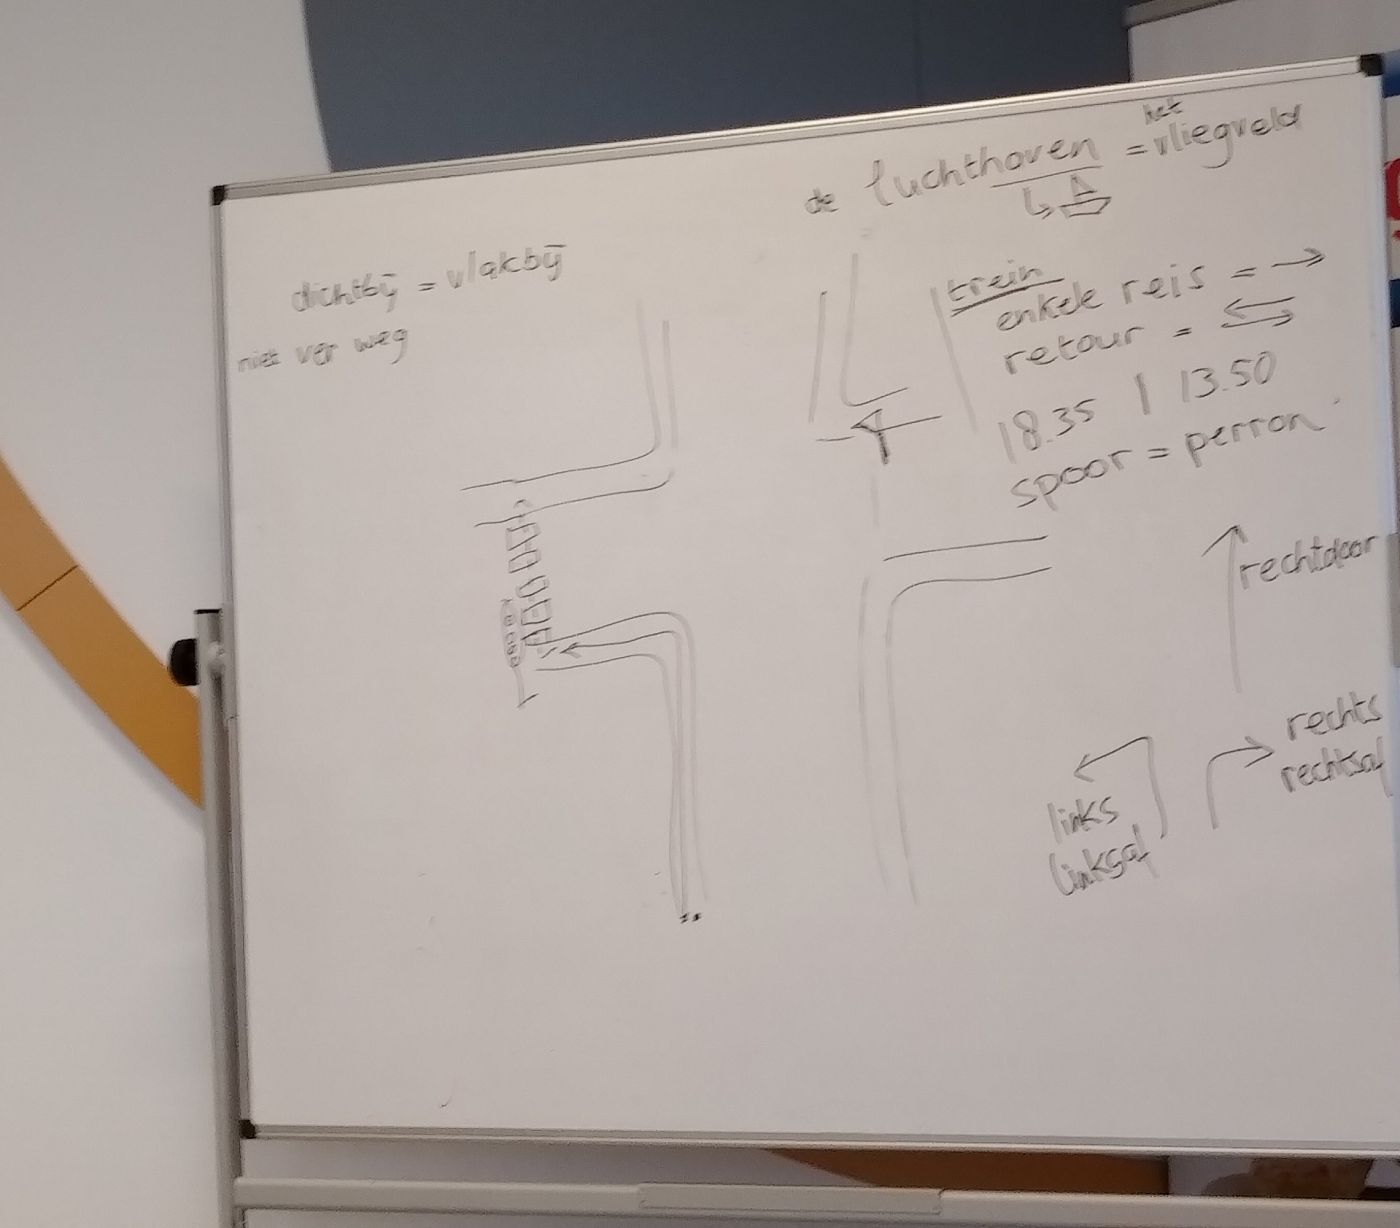 de luchthaven = het vliegveld
dichtbij = vlakbij
niet ver weg
trein
enkele reis = →
retour = ⇆
18.35 | 13.50
spoor = perron
rechtdoor
rechts
rechtsaf
links
linksaf